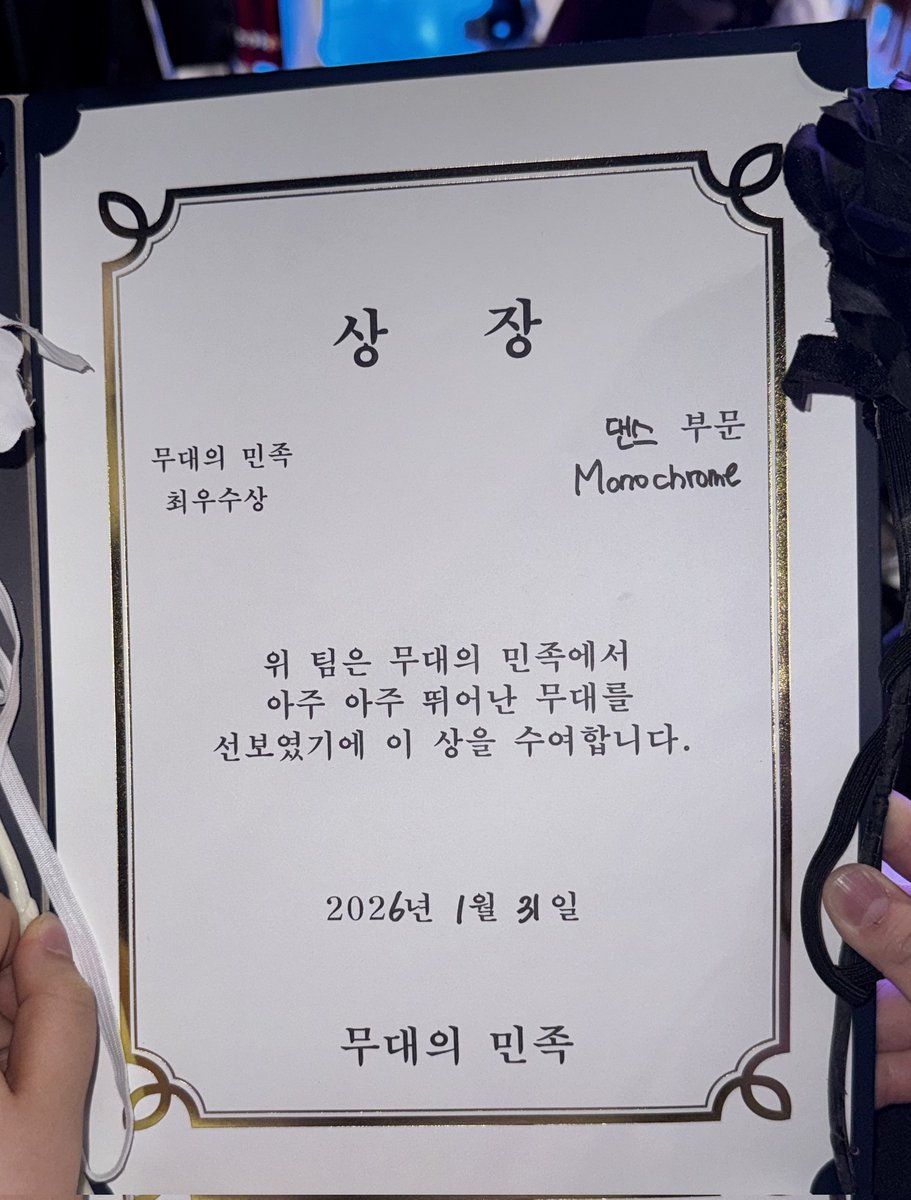 상 장
무대의 민족
최우수상
댄스 부문
Monochrome
위 팀은 무대의 민족에서
아주 아주 뛰어난 무대를
선보였기에 이 상을 수여합니다.
2026년 1월 31일
무대의 민족